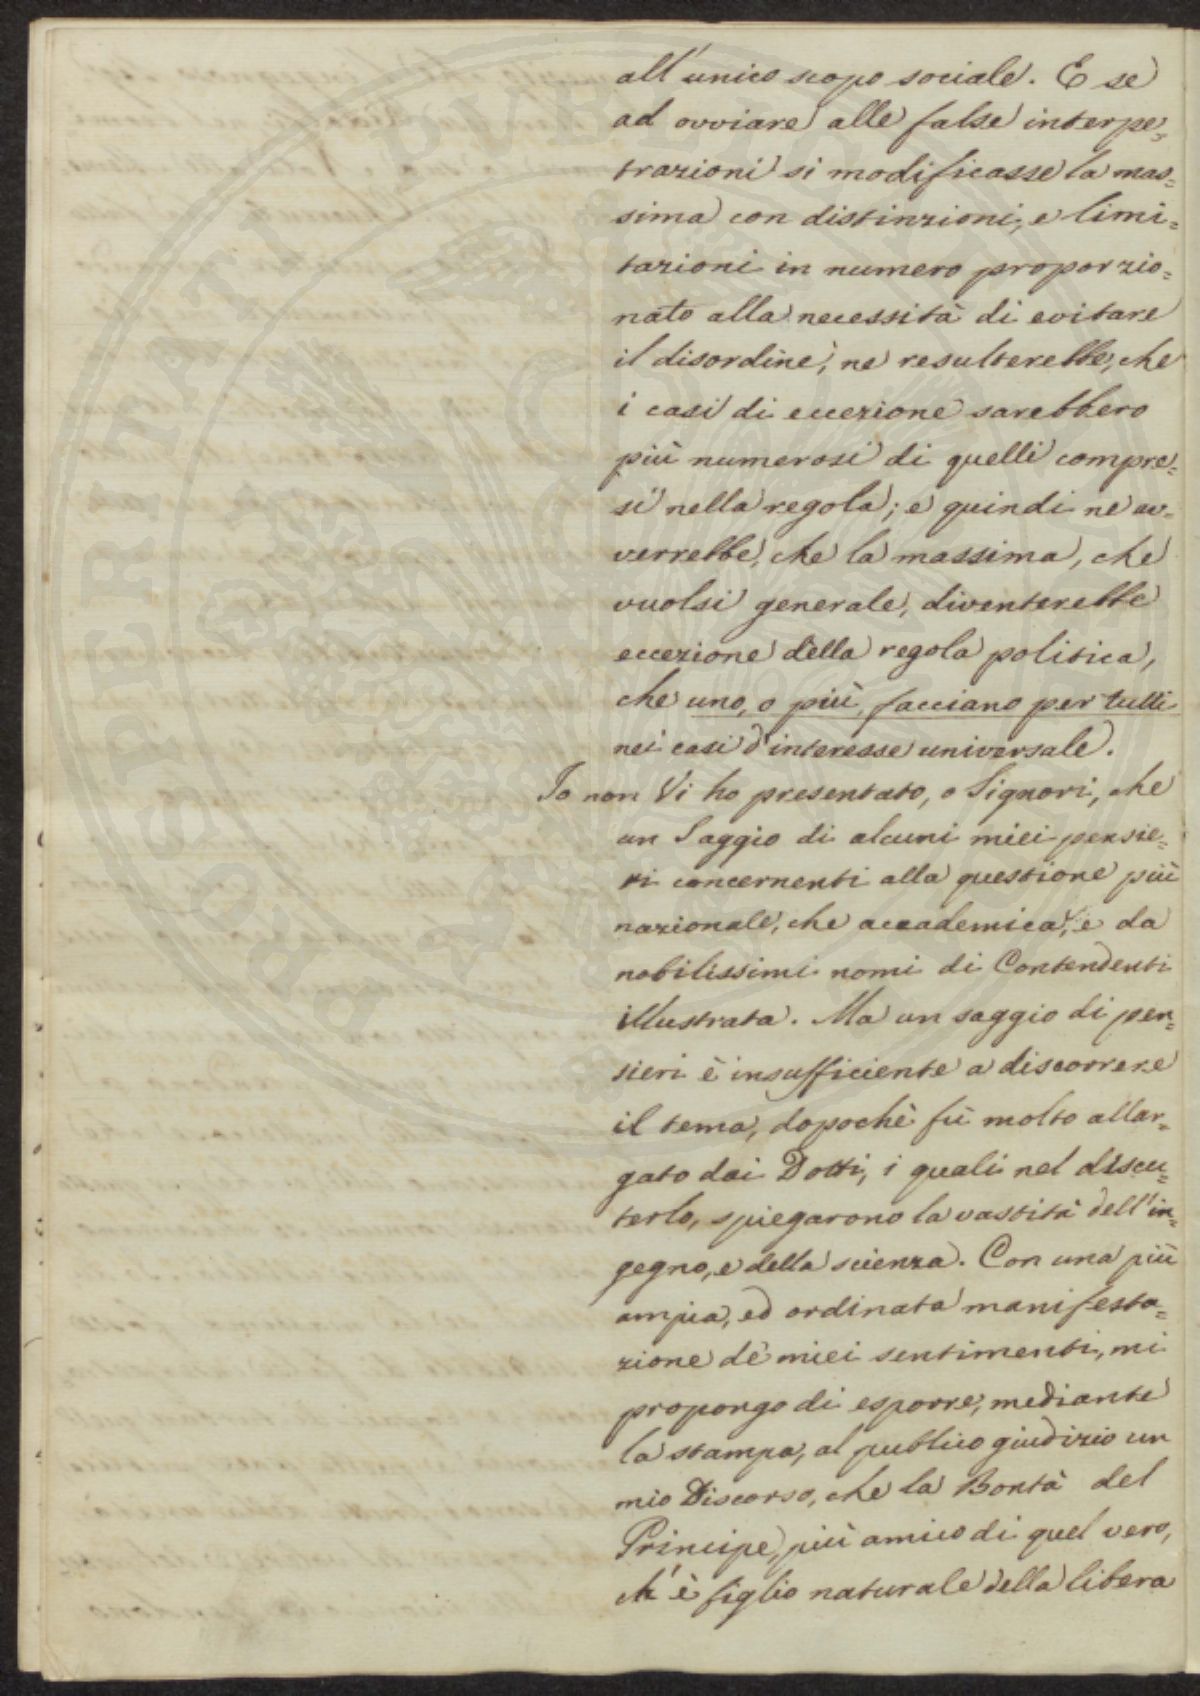 all'unico scopo sociale. E se
ad ovviare alle false interpe=
trazioni si modificasse la mas=
sima con distinzioni, e limi=
tazioni in numero proporzio=
nato alla necessità di evitare
il disordine, ne resulterebbe, che
i casi di eccezione sarebbero
più numerosi di quelli compre=
si nella regola; e quindi ne av=
verrebbe, che la massima, che
vuolsi generale, diventerebbe
eccezione della regola politica,
che uno, o più, facciano per tutti
nei casi d'interesse universale.
Io non Vi ho presentato, o Signori, che
un Saggio di alcuni miei pensie=
ri concernenti alla questione più
nazionale, che accademica, e da
nobilissimi nomi di Contendenti
illustrata. Ma un saggio di pen=
sieri è insufficiente a discorrere
il tema, dopochè fù molto allar=
gato dai Dotti, i quali nel discu=
terlo, spiegarono la vastità dell'in=
gegno, e della scienza. Con una più
ampia, ed ordinata manifesta=
zione de' miei sentimenti, mi
propongo di esporre, mediante
la stampa, al publico giudizio un
mio Discorso, che la Bontà del
Principe, più amico di quel vero,
ch'è figlio naturale della libera
PROSPERITATI PVBLICAE